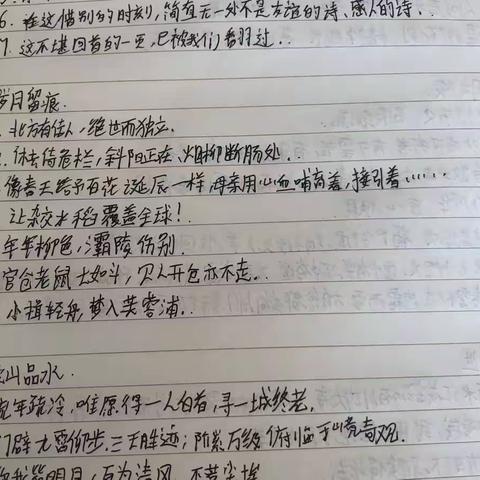 6. 在这惜别的时刻,简直无一处不是友谊的诗、感人的诗..
7. 这不堪回首的一页,已被我们翻过..
岁月留痕.
北方有佳人,绝世而独立.
休去倚危栏,斜阳正在、烟柳断肠处..
像春天给予百花诞辰一样,母亲用心血哺育着,接引着......
让杂交水稻覆盖全球!
年年柳色,灞陵伤别.
官仓老鼠大如斗,见人开仓亦不走..
小楫轻舟,梦入芙蓉浦..
山品水.
唯愿得一人白首,寻一城终老.
门辟九霄仰步三天胜迹;阶崇万级俯临千嶂奇观.
明月,